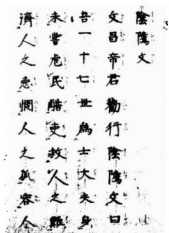 陰騭文
文昌帝君勸行陰騭文曰
吾一十七世為士大夫身
未嘗虐民酷吏救人之難
濟人之急憫人之孤容人